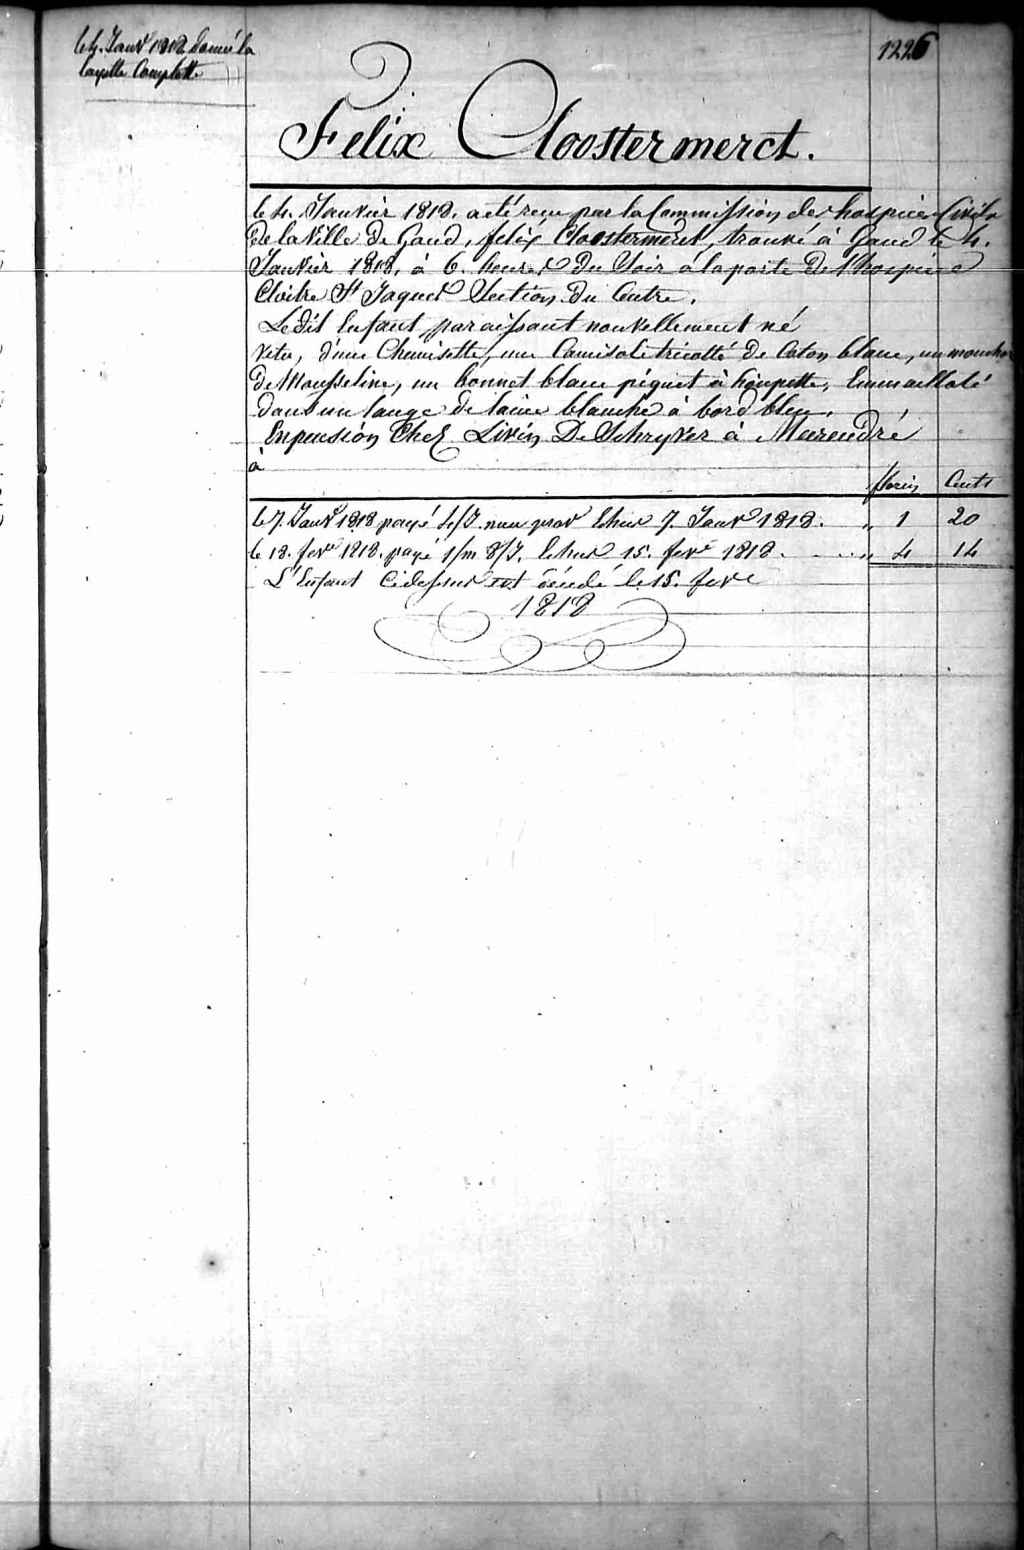 le 4. Janvr 1818 donné la
layette Complette
1226
Felix Cloostermerct.
le 4. Janvier 1818. a été reçu par la Commission des hospices Civils
de la Ville de Gand, felix Cloostermerct, trouvé à Gand le 4.
Janvier 1818, à 6. heures du Soir à la porte de l'hospice
Cloitre St Jaques Section du Centre.
Ledit Enfant paraissant nouvellement né
vetu, d'une Chemisette, une Camisole tricotté de Coton blanc, un mouchoir
de Mousseline, un bonnet blanc piquet à houpette, Emmailloté
dans un lange de laine blanche à bord bleu.
En pension Chez Livin De Schryver à Meerendré
à
florin Cents
le 7. Janvr 1818 payé 4/J. échus 7. Janvr 1818. " 1 20
le 18. fevr 1818. payé 1/m 8/J. Echus 15. fevr 1818. " 4 14
L'Enfant Cidessus est décédé le 15. fevr
1818